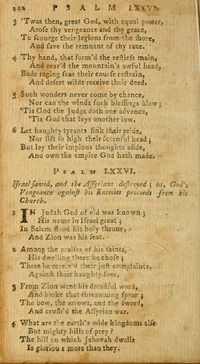 292 PSALM LXXVI.
3 'Twas then, great God, with equal power,
Arose thy vengeance and thy grace,
To scourge their legions from the shore,
And save the remnant of thy race.
4 Thy hand, that form'd the restless main,
And rear'd the mountain's awful head,
Bade raging seas their course restrain,
And desert wilds receive their dead.
5 Such wonders never come by chance,
Nor can the winds such blessings blow;
'Tis God the Judge doth one advance,
'Tis God that lays another low.
6 Let haughty tyrants sink their pride,
Nor lift so high their scornful head;
But lay their impious thoughts aside,
And own the empire God hath made.
PSALM LXXVI.
Israel saved, and the Assyrians destroyed; or, God's
Vengeance against his Enemies proceeds from his
Church.
1 IN Judah God of old was known;
His name in Israel great;
In Salem stood his holy throne,
And Zion was his seat.
2 Among the praises of his saints,
His dwelling there he chose;
There he receiv'd their just complaints,
Against their haughty foes.
3 From Zion went his dreadful word,
And broke that threatening spear;
The bow, the arrows, and the sword,
And crush'd the Assyrian war.
4 What are the earth's wide kingdoms else
But mighty hills of prey?
The hill on which Jehovah dwells
Is glorious more than they.